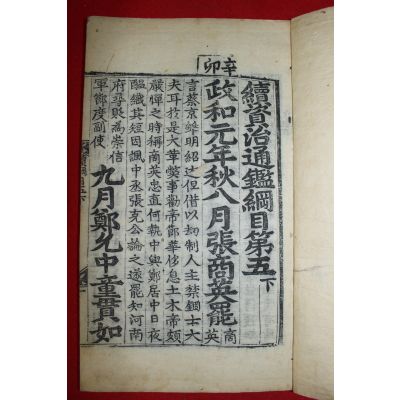 辛卯
續資治通鑑綱目第五下
政和元年秋八月張商英罷商英
言蔡京雖明紹述但借以刼制人主禁錮士大
夫耳於是大革弊事勸帝節華侈息土木帝頗
嚴憚之時稱商英忠直何執中與鄭居中日夜
醞織其短因諷中丞張克公論之遂罷知河南
府尋貶為崇信
軍節度副使
九月鄭允中童貫如